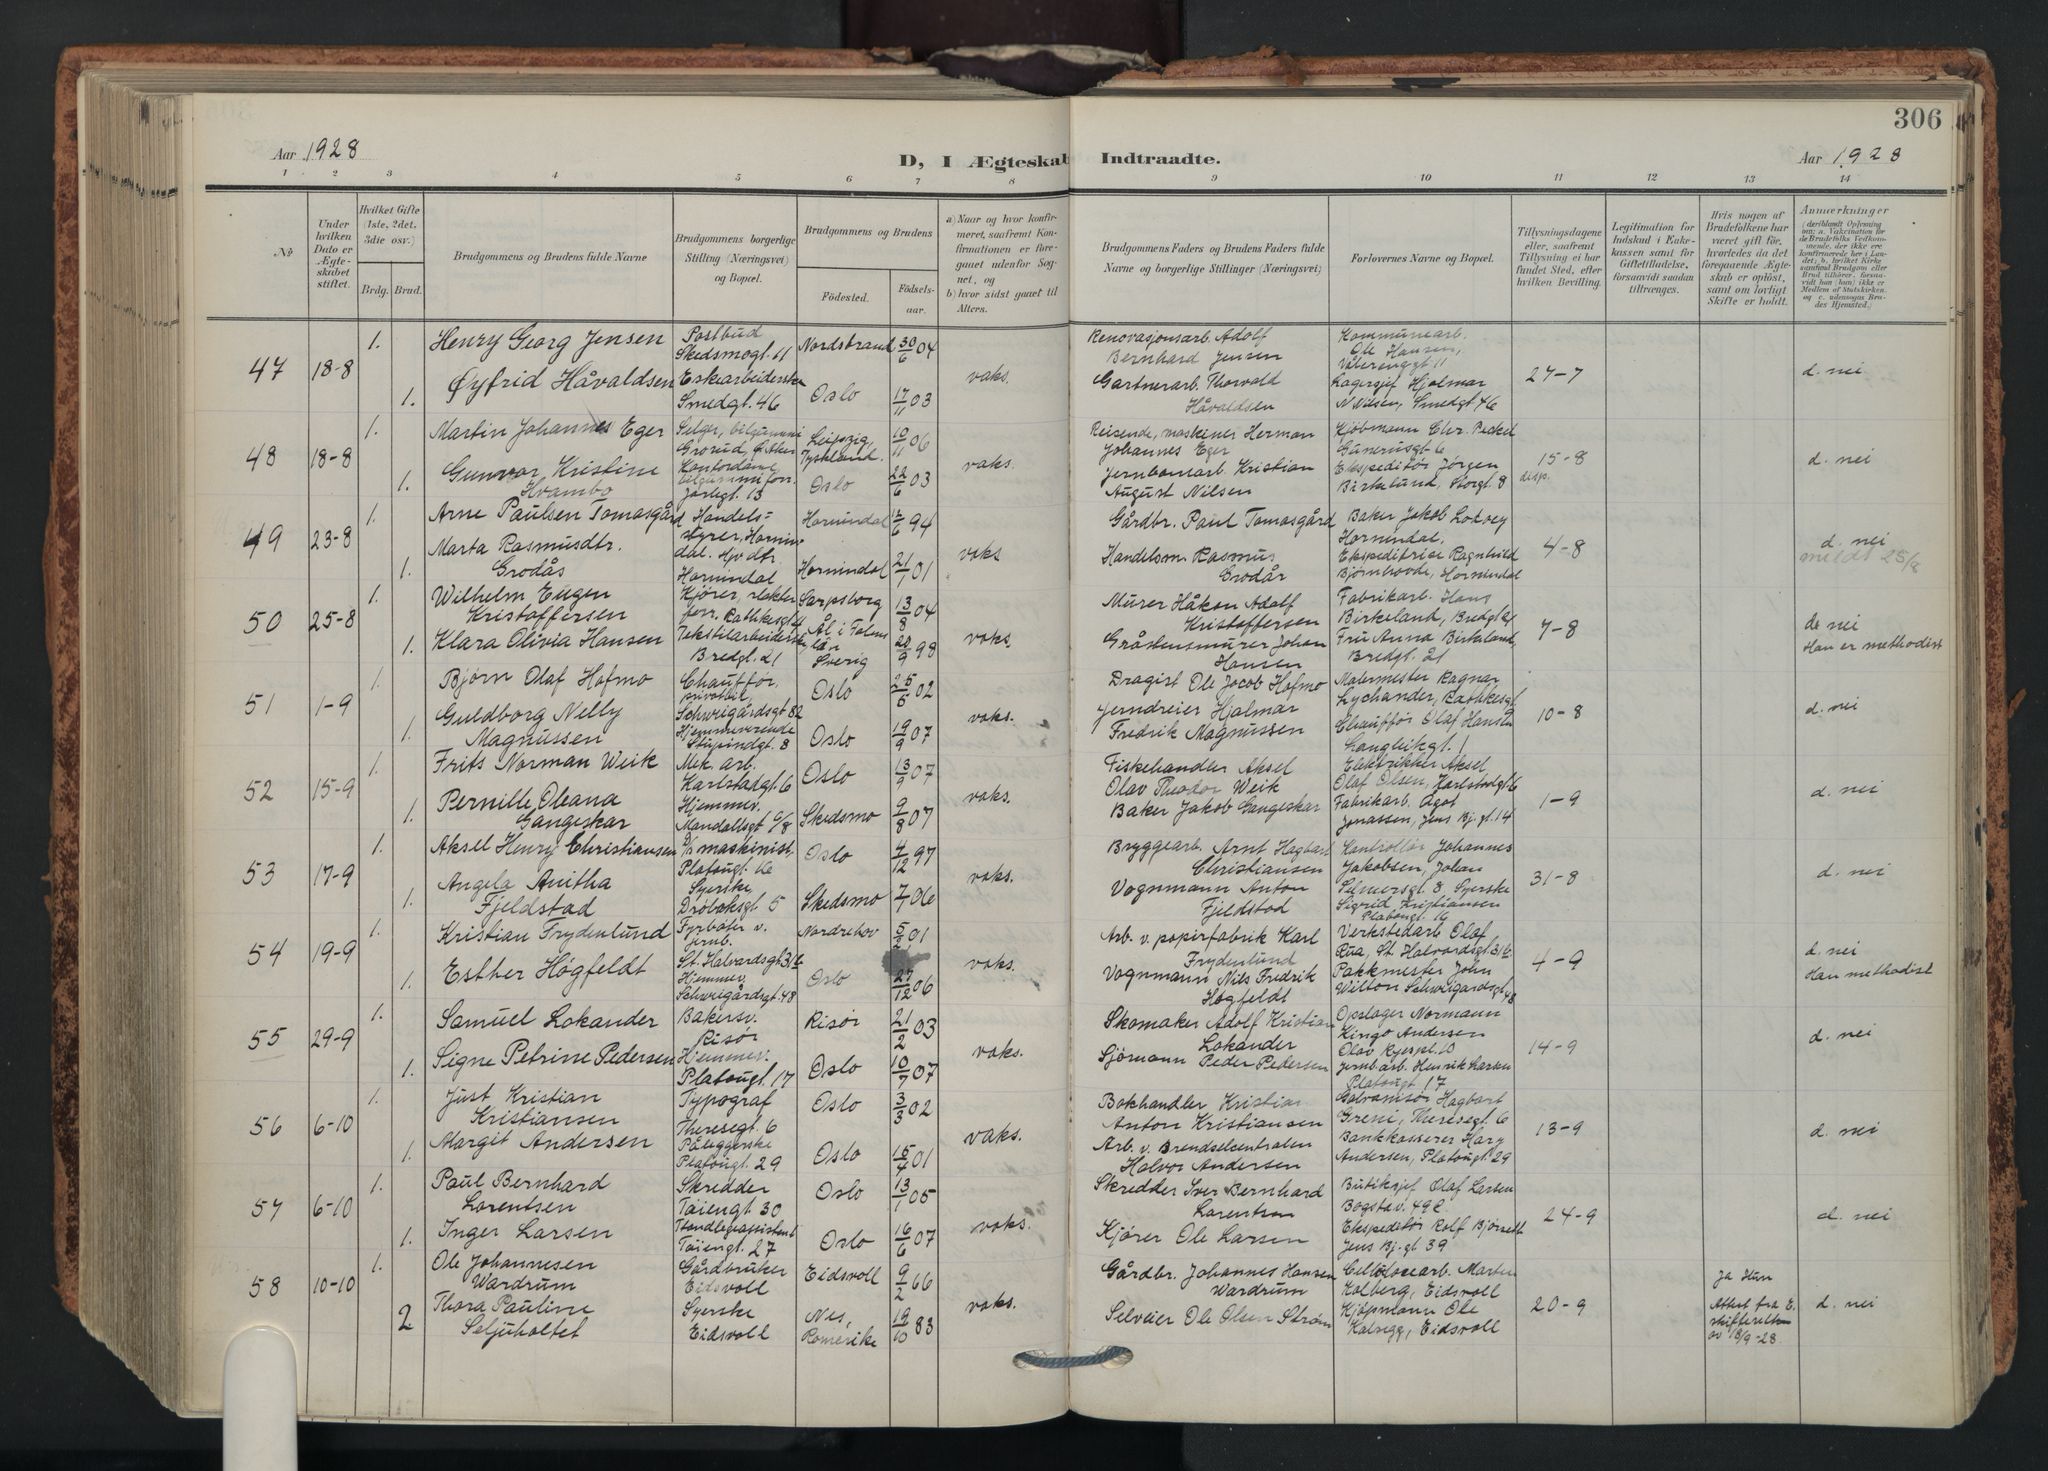 306
Aar 1928
D, I Ægteskab Indtraadte.
Aar 1928
1 2 3 4 5 6 7 8 9 10 11 12 13 14
No
Under hvilken Dato er Ægteskabet stiftet.
Hvilket Gifte (1ste, 2det, 3die osv.)
Brdg. Brud.
Brudgommens og Brudens fulde Navne
Brudgommens borgerlige Stilling (Næringsvei) og Bopæl.
Brudgommens og Brudens
Fødested.
Fødselsaar.
a) Naar og hvor konfirmeret, saafremt Konfirmationen er foregaaet udenfor Sognet, og
b) hvor sidst gaaet til Alters.
Brudgommens Faders og Brudens Faders fulde Navne og borgerlige Stillinger (Næringsvei)
Forlovernes Navne og Bopæl.
Tillysningsdagene eller, saafremt Tillysning ei har fundet Sted, efter hvilken Bevilling.
Legitimation for Indskud i Enkekassen samt for Giftetilladelse, forsaavidt saadan tiltrænges.
Hvis nogen af Brudefolkene har været gift før, hvorledes da det foregaaende Ægteskab er opløst, samt om lovligt Skifte er holdt.
Anmærkninger
47 18-8
1. Henry Georg Jensen Postbud Skedsmogt. 11 Nordstrand 30/6 04
Renovasjonsarb. Adolf Bernhard Jensen
Kommunearb. Ole Hansen, Vålerenggt 11
1. Øyfrid Håvaldsen Eskearbeiderske Smedgt. 46 Oslo 17/11 03 vaks.
Gartnerarb. Thorvald Håvaldsen
Lagersjef Hjalmar N Nilsen, Smedgt 46
27-7
d. nei
48 18-8
1. Martin Johannes Eger Selger, bilgummi Grorud, Ø. Aker Leipzig, Tyskland. 10/11 06
Reisende, maskiner Herman Johannes Eger
Kjøbmann Chr. Peckel Gunerusgt 6
1. Gunvor Kristine Hvambo Kontordame bilgummiforr. Jarlegt. 13 Oslo 22/6 03 vaks.
Jernbanearb. Kristian August Nilsen
Ekspeditør Jørgen Birkelund, Storgt. 8
15-8 disp.
d. nei
49 23-8
1. Arne Paulsen Tomasgård Handelsstyrer, Hornindal. Hornindal 12/6 94
Gårdbr. Paul Tomasgård
Baker Jakob Lotvey Hornindal.
1. Marta Rasmusdtr. Grodås Hpv dtr. Hornindal Hornindal 21/1 01 vaks
Handelsm Rasmus Grodås
Ekspeditrise Ragnhild Bjørnhovde, Hornindal
4-8
d. nei
meldt 25/8
50 25-8
1. Wilhelm Eugen Kristoffersen Kjører, slakterforr. Rathkesgt Sarpsborg 13/8 04
Murer Håkon Adolf Kristoffersen
Fabrikarb. Hans Birkeland, Bredgt 21
1. Klara Olivia Hansen Tekstilarbeiderske Bredgt. 21 Sverig 20/9 98 vaks.
Gråstensmurer Johan Hansen
Fru Anna Birkeland, Bredgt. 21
7-8
d. nei
Han er methodist
51 1-9
1. Bjørn Olaf Hofmo Chauffør, privatbil Schweigårdsgt 82 Oslo 25/5 02
Dragist Ole Jacob Hofmo
Malermester Ragnar Lychander, Rathkesgt
1. Guldborg Nelly Magnussen Hjemmeværende Stupindgt. 8 Oslo 19/9 07 vaks.
Jerndreier Hjalmar Fredrik Magnussen
Chauffør Olaf Hansen Langleikgt. 1
10-8
d. nei
52 15-9
1. Frits Norman Weik Mek. arb. Karlstadgt 6 Oslo 13/9 07
Fiskehandler Aksel Olav Theodor Weik
Elektrikker Aksel Olaf Olsen, Karlstadgt 6
1. Pernille Oleana Gangeskar Hjemmev. Mandallsgt 9/8 Skedsmo 9/8 07 vaks.
Baker Jakob Gangeskar
Fabrikarb. Agot Jonassen, Jens Bj. gt. 14
1-9
d. nei
53 17-9
1. Aksel Henry Christiansen D/s maskinist, Platougt. 16 Oslo 4/12 97
Bryggearb. Arnt Hagbart Christiansen
Kontrollør Johannes Jakobsen, Johan Selmersgt. 3
1. Angela Anitha Fjeldstad Syerske, Drøbaksgt 5 Skedsmo 7/1 06 vaks.
Vognmann Anton Fjeldstad
Syerske Sigrid Kristiansen Platougt. 16
31-8
d. nei
54 19-9
1. Kristian Frydenlund Fyrbøter v. jernb. St. Halvardsgt 31b Nordrehov 5/2 01
Arb. v. papirfabrik Karl Frydenlund
Verkstedarb Olaf Rua, St. Halvardsgt. 31b.
1. Esther Høgfeldt Hjemmev. Schweigårdsgt. 48 Oslo 27/12 06 vaks.
Vognmann Nils Fredrik Høgfeldt
Pakkmester John Wilton Schweigaardsgt. 48
4-9
d. nei
Han methodist
55 29-9
1. Samuel Lokander Bakersv. Risør Risør 21/2 03
Skomaker Adolf Kristian Lokander
Opslager Normann Kingo Andersen Olav Kyrrespl. 10
1. Signe Petrine Pedersen Hjemmev. Platougt. 17 Oslo 10/7 07 vaks.
Sjømann Peder Pedersen
Jernb. arb. Henrik Larsen Platougt 17
14-9
d. nei
56 6-10
1. Just Kristian Kristiansen Typograf Theresegt. 6 Oslo 3/3 02
Bokhandler Kristian Anton Kristiansen
Galvanisør Hagbart Greni, Theresegt. 6
1. Margit Andersen Påleggerske Platougt. 29 Oslo 15/4 01 vaks.
Arb. v. Brendselcentralen Halvor Andersen
Bankkasserer Hary Andersen, Platougt. 29
13-9
d. nei
57 6-10
1. Paul Bernhard Lorentsen Skredder Tøiengt. 30 Oslo 13/1 05
Skredder Iver Bernhard Lorentsen
Butiksjef Olaf Larsen Bogstav. 49c
1. Inger Larsen Handlegasistent Tøiengt. 27 Oslo 16/6 07 vaks.
Kjører Ole Larsen
Ekspeditør Rolf Bjørseth Jens Bj. gt 39
24-9
d. nei
58 10-10
1. Ole Johannesen Wardrum Gårdbruker Eidsvoll Eidsvoll 9/2 66
Gårdbr. Johannes Hansen Wardrum
Cellulosearb. Marten Kolberg, Eidsvoll
2 Thora Pauline Seljuholtet Syerske Eidsvoll Nes, Romerike 19/10 83 vaks.
Selveier Ole Olsen Strøm
Kjøpmann Ole Halsegg, Eidsvoll
20-9
Ja Hun
Attest fra E. skifterett av 18/9-28
d. nei